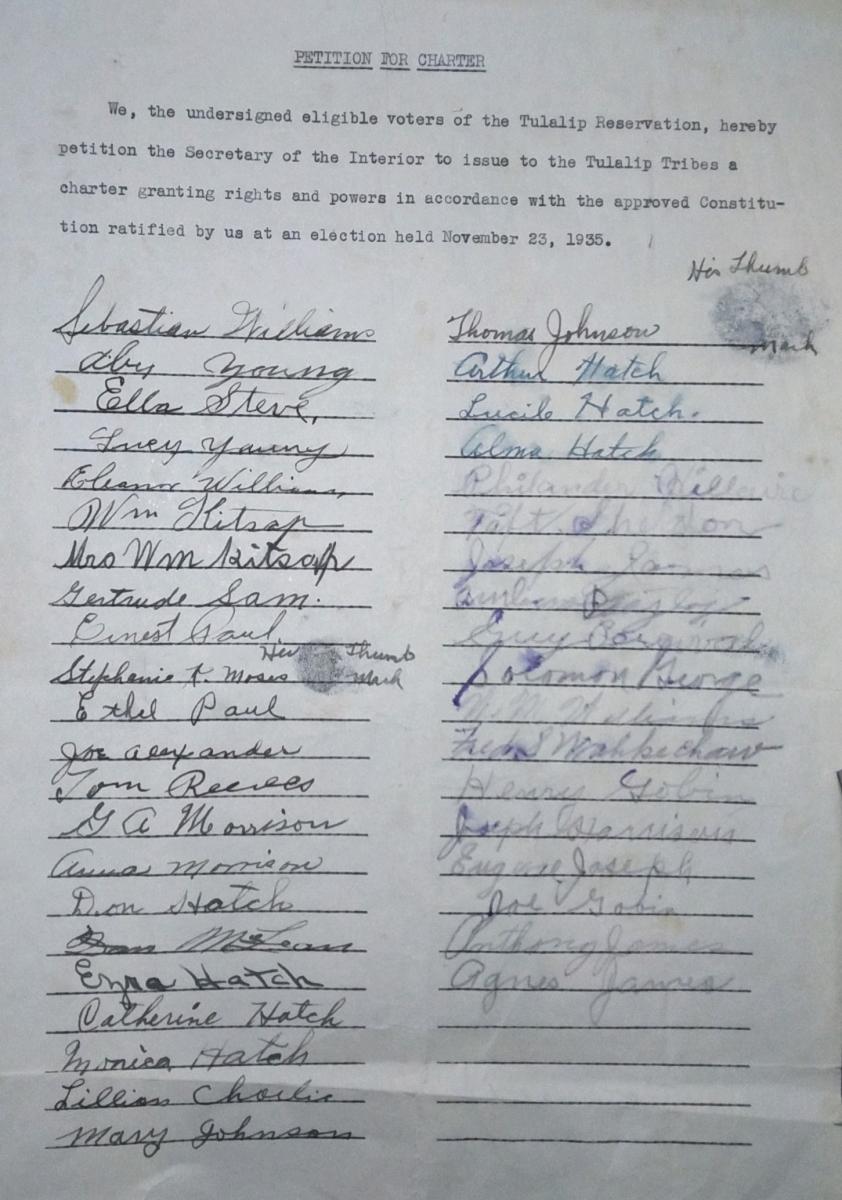 PETITION FOR CHARTER
We, the undersigned eligible voters of the Tulalip Reservation, hereby
petition the Secretary of the Interior to issue to the Tulalip Tribes a
charter granting rights and powers in accordance with the approved Constitu-
tion ratified by us at an election held November 23, 1935.
His Thumb
mark
Sebastian Williams
Aby Young
Ella Steve,
Lucy Young
Eleanor Williams
Wm Kitsap
Mrs Wm Kitsap
Gertrude Sam.
Ernest Paul
Her Thumb
Stephanie K. Moses mark
Ethel Paul
Joe Alexander
Tom Reeves
G A Morrison
Anna Morrison
Don Hatch
McLean
Ezra Hatch
Catherine Hatch
Monica Hatch
Lillian Charlie
Mary Johnson
Thomas Johnson
Arthur Hatch
Lucile Hatch.
Alma Hatch
Philander Hillaire
Taft Shelton
Joseph
Solomon George
Williams
Henry Gobin
Harrison
Eugene Joseph
Joe Gobin
Anthony James
Agnes James